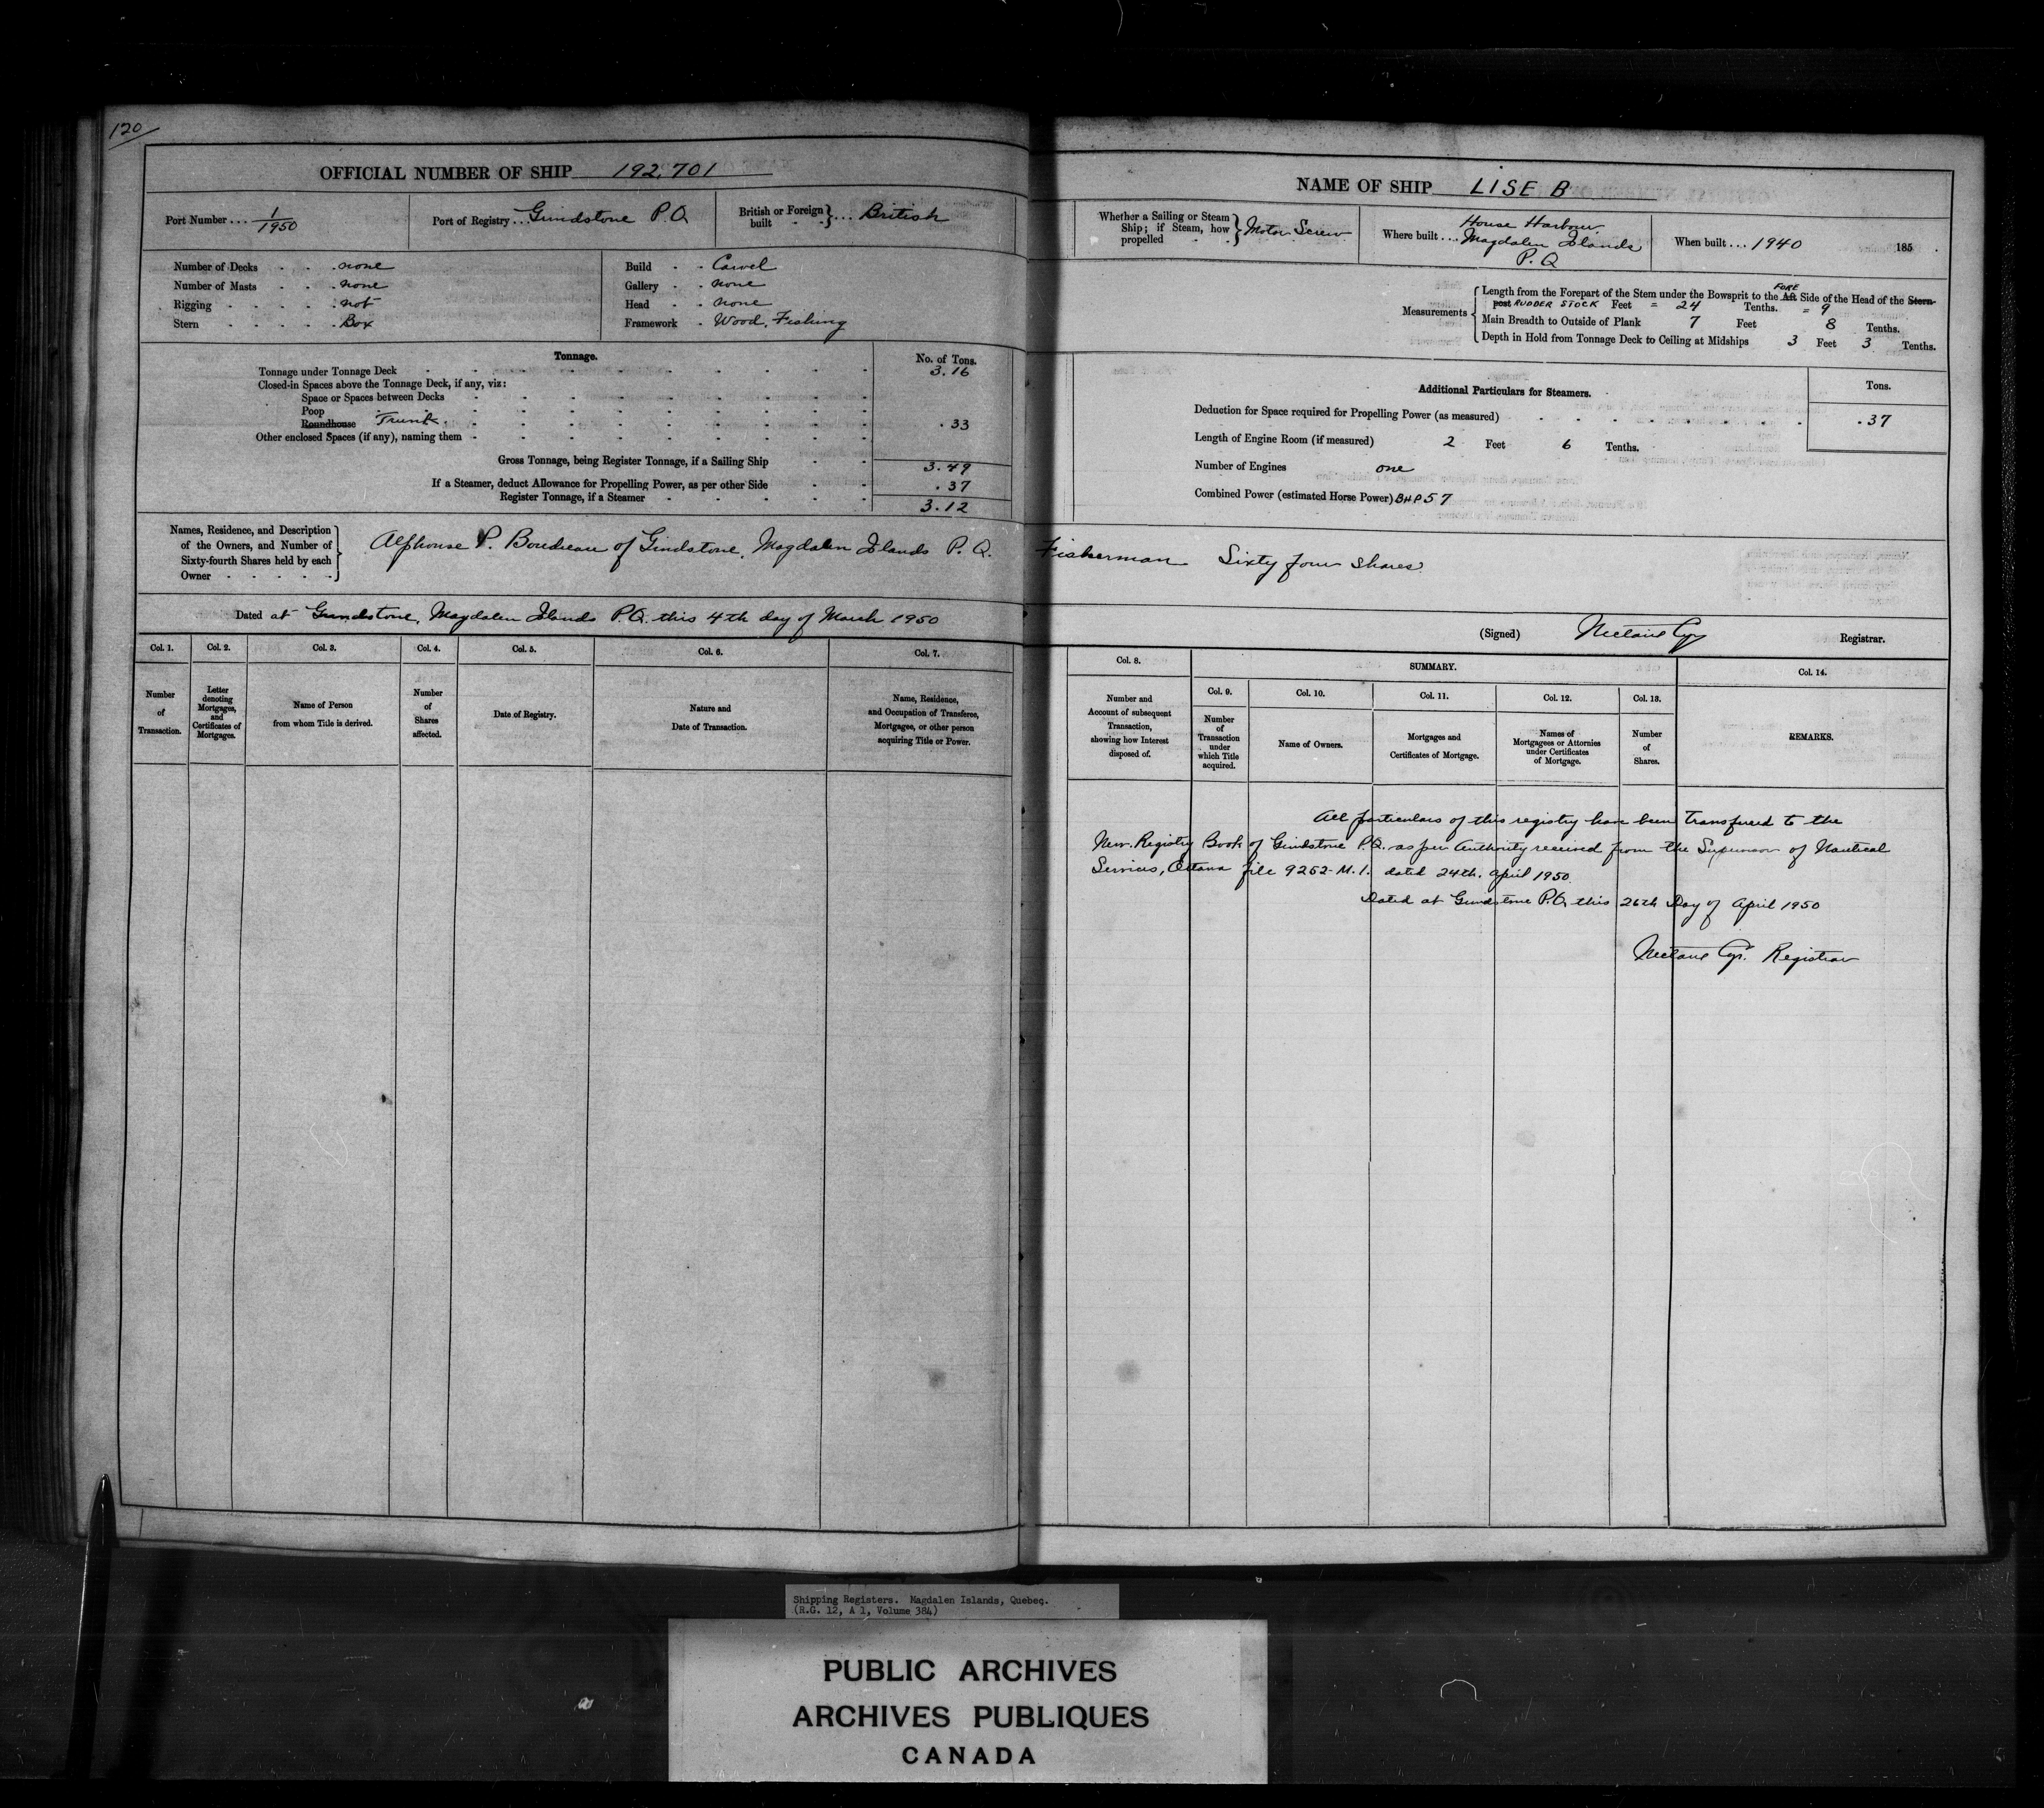 120
OFFICIAL NUMBER OF SHIP 192,701
Port Number . . . 1/1950
Port of Registry . . . Grindstone P.Q
British or Foreign built . . . British
Number of Decks . . . none
Number of Masts . . . none
Rigging . . . not
Stern . . . Box
Build . . Carvel
Gallery . . none
Head . . none
Framework . Wood, Fishing
Tonnage.
No. of Tons.
Tonnage under Tonnage Deck 3.16
Closed-in Spaces above the Tonnage Deck, if any, viz:
Space or Spaces between Decks
Poop
Roundhouse Trunk .33
Other enclosed Spaces (if any), naming them
Gross Tonnage, being Register Tonnage, if a Sailing Ship 3.49
If a Steamer, deduct Allowance for Propelling Power, as per other Side .37
Register Tonnage, if a Steamer 3.12
NAME OF SHIP LISE B
Whether a Sailing or Steam Ship; if Steam, how propelled Motor Screw
Where built . . . House Harbour
Magdalen Islands
P.Q
When built . . . 1940 185 .
Measurements
Length from the Forepart of the Stem under the Bowsprit to the Aft FORE Side of the Head of the Stern-
post RUDDER STOCK Feet = 24 Tenths. = 9
Main Breadth to Outside of Plank 7 Feet 8 Tenths.
Depth in Hold from Tonnage Deck to Ceiling at Midships 3 Feet 3 Tenths.
Additional Particulars for Steamers.
Tons.
Deduction for Space required for Propelling Power (as measured) .37
Length of Engine Room (if measured) 2 Feet 6 Tenths.
Number of Engines one
Combined Power (estimated Horse Power) BHP 57
Names, Residence, and Description of the Owners, and Number of Sixty-fourth Shares held by each Owner
Alphonse P. Boudreau of Grindstone, Magdalen Islands P.Q. Fisherman Sixty four shares
Dated at Grindstone, Magdalen Islands P.Q. this 4th day of March 1950
(Signed) Cyr Registrar.
Col. 1.
Number of Transaction.
Col. 2.
Letter denoting Mortgages, and Certificates of Mortgages.
Col. 3.
Name of Person from whom Title is derived.
Col. 4.
Number of Shares affected.
Col. 5.
Date of Registry.
Col. 6.
Nature and Date of Transaction.
Col. 7.
Name, Residence, and Occupation of Transferee, Mortgagee, or other person acquiring Title or Power.
Col. 8.
Number and Account of subsequent Transaction, showing how Interest disposed of.
SUMMARY.
Col. 9.
Number of Transaction under which Title acquired.
Col. 10.
Name of Owners.
Col. 11.
Mortgages and Certificates of Mortgage.
Col. 12.
Names of Mortgagees or Attornies under Certificates of Mortgage.
Col. 13.
Number of Shares.
Col. 14.
REMARKS.
All particulars of this registry have been transfered to the
New. Registry Book of Grindstone P.Q. as per Authority received from the Supervisor of Nautical
Services, Ottawa file 9262-M.1. dated 24th. April 1950
Dated at Grindstone P.Q. this 26th Day of April 1950
Cyr. Registrar
Shipping Registers. Magdalen Islands, Quebec.
(R.G. 12, A 1, Volume 384)
PUBLIC ARCHIVES
ARCHIVES PUBLIQUES
CANADA